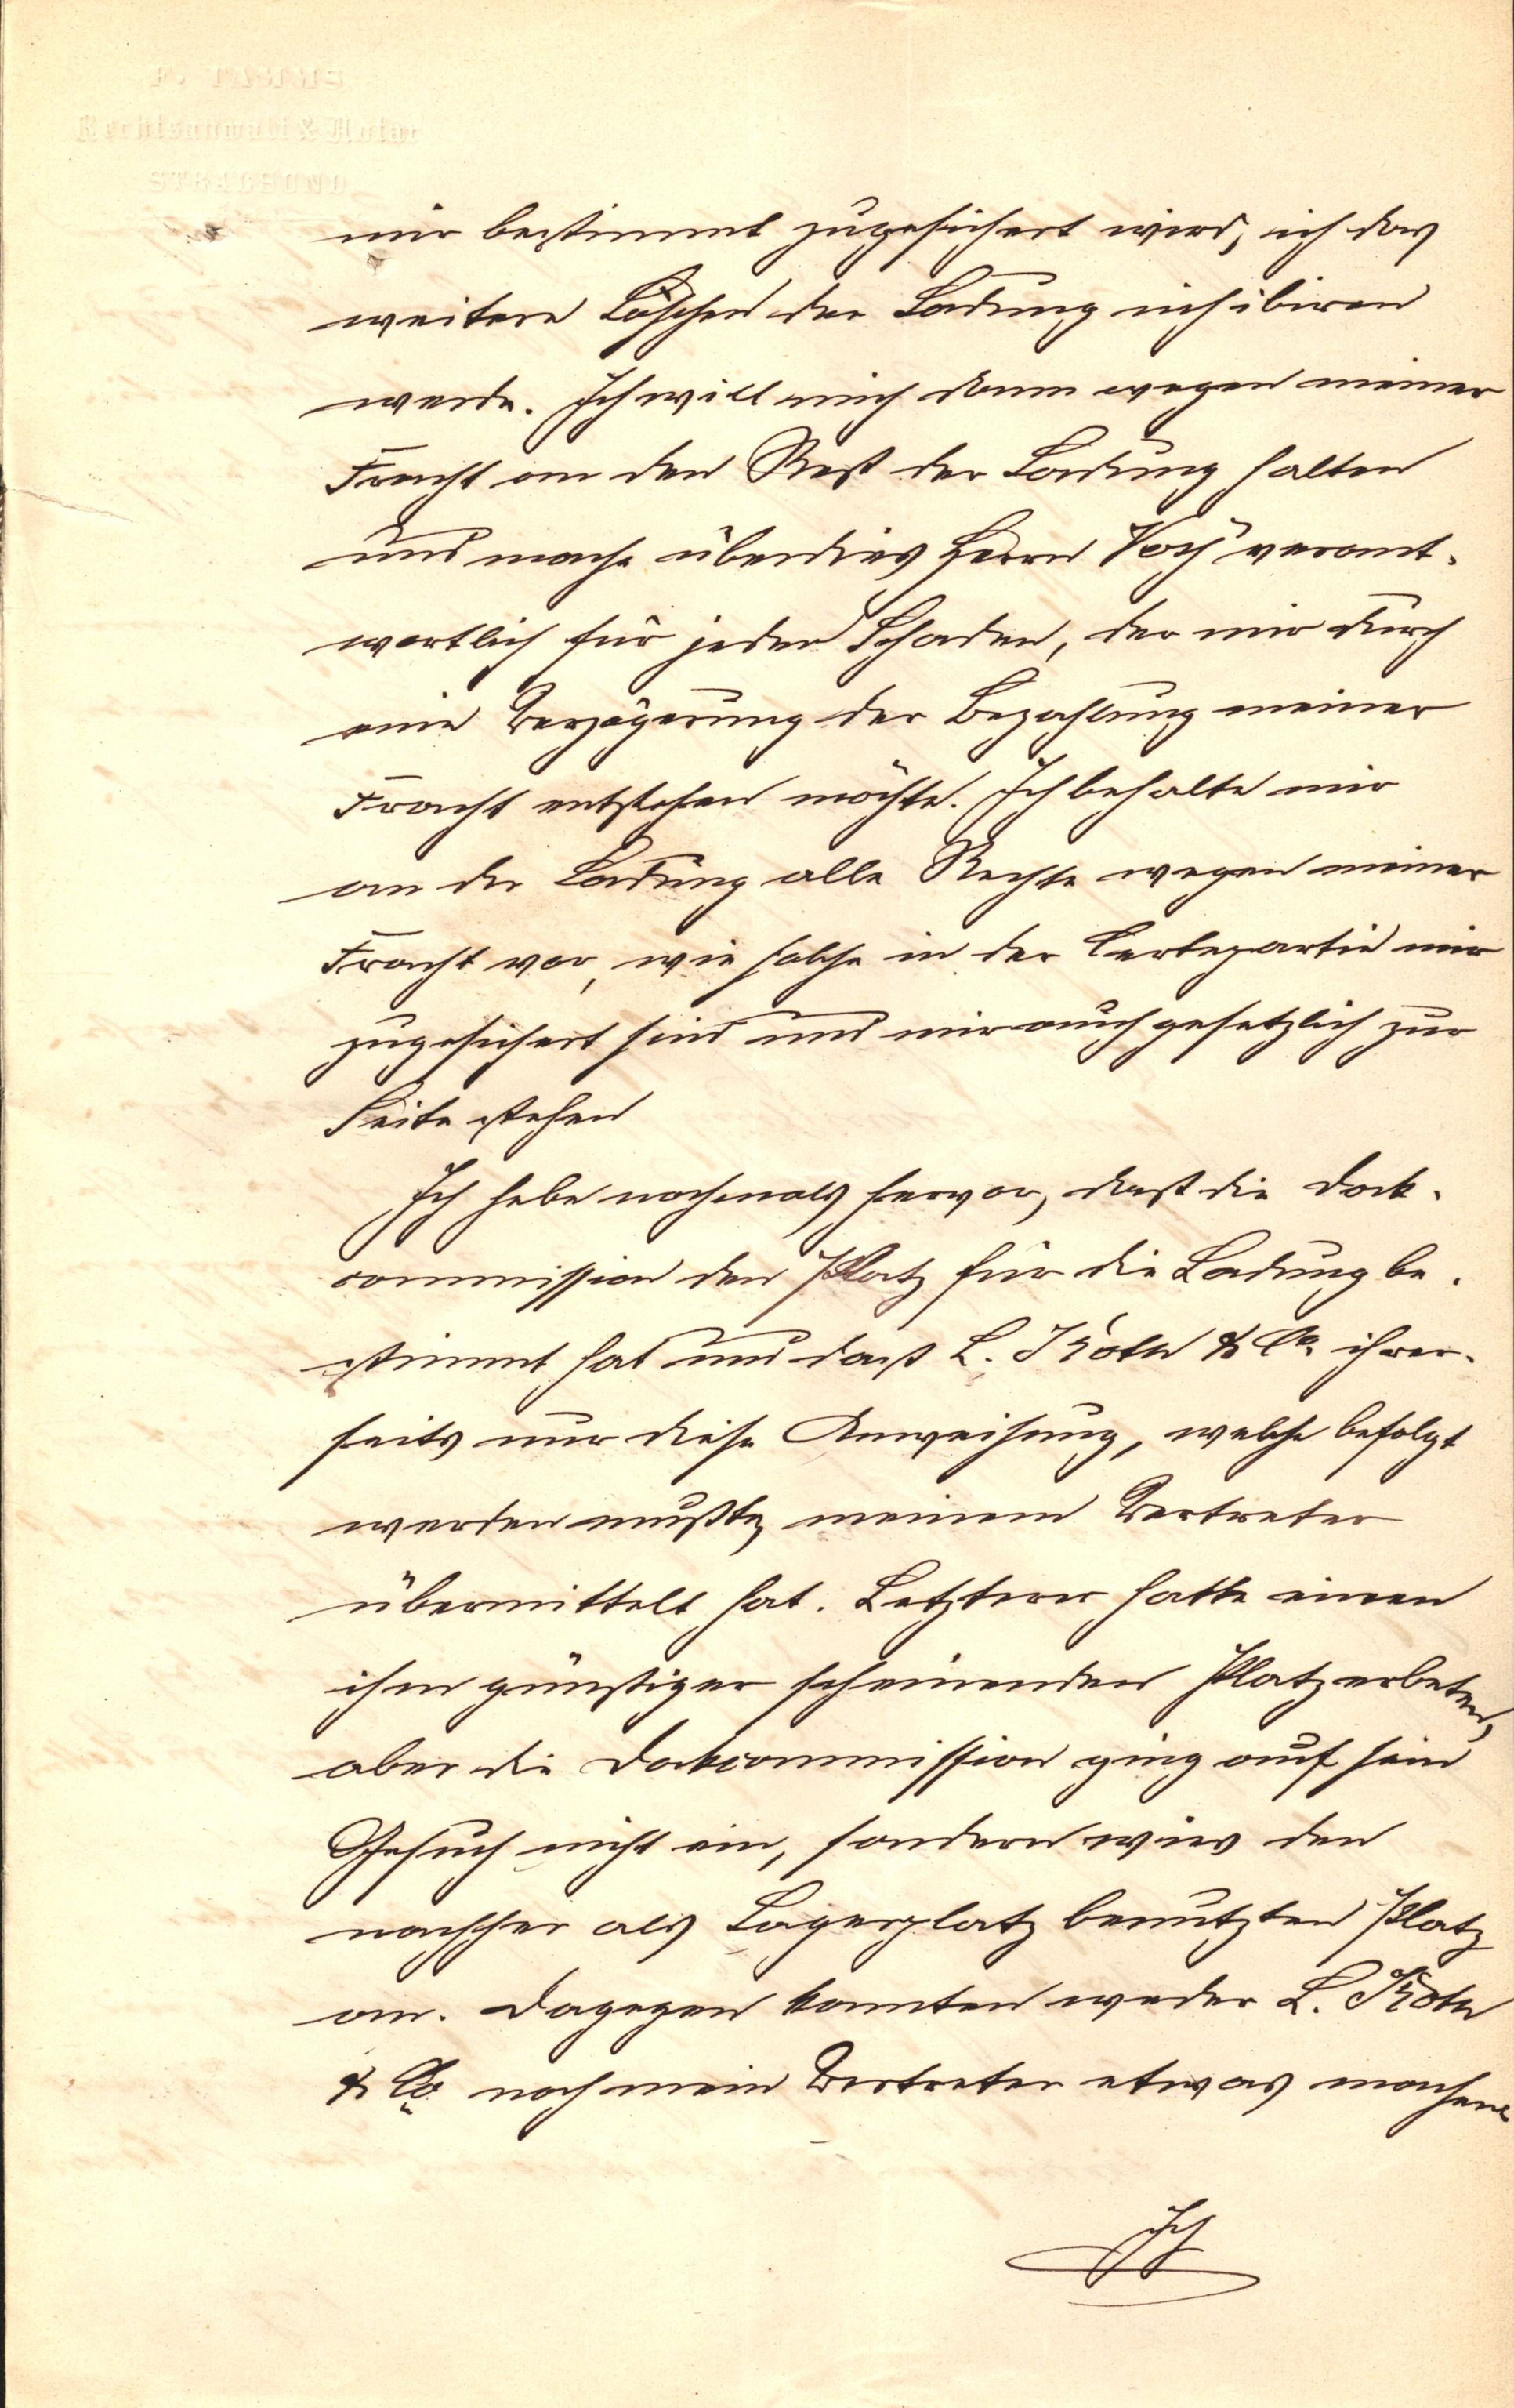 F. TAMMS
Rechtsanwalt & Notar
STRALSUND
mir bestimmt zugesichert wird, ich das
weitere Löschen der Ladung inhibiren
werde. Ich will mich dann wegen meiner
Fracht an den Rest der Ladung halten
und mache überdies Herrn verant-
wortlich für jeden Schaden, der mir durch
eine Verzögerung der Bezahlung meiner
Fracht entstehen möchte. Ich behalte mir
an der Ladung alle Rechte wegen meiner
Fracht vor, wie solche in der Certepartie mir
zugesichert sind und mir auch gesetzlich zur
Seite stehen
Ich hebe nochmals hervor, daß die Dock-
commission den Platz für die Ladung be-
stimmt hat und daß L. & Co. ihrer-
seits nur diese Anweisung, welche befolgt
werden mußte, meinem Vertreter
übermittelt hat. Letzterer hatte einen
ihm günstiger scheinenden Platz erbeten,
aber die Dockcommission ging auf sein
Gesuch nicht ein, sondern wies den
nachher als Lagerplatz benutzten Platz
an. Dagegen konnten weder L.
& Co noch mein Vertreter etwas machen
Ich